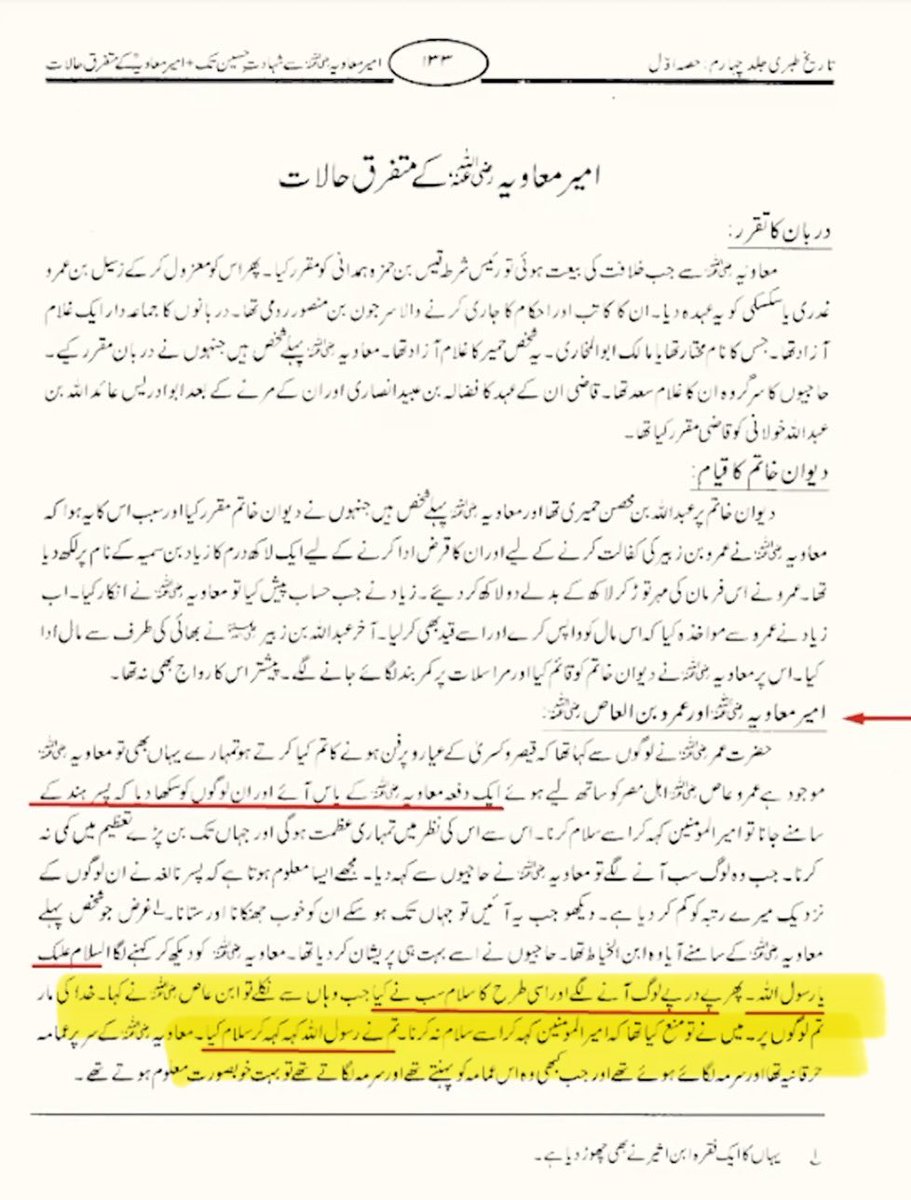 تاریخ طبری جلد چہارم: حصہ اوّل
۱۳۳
امیر معاویہ رضی اللہ عنہ سے شہادتِ حسین تک + امیر معاویہؓ کے متفرق حالات
امیر معاویہ رضی اللہ عنہ کے متفرق حالات
دربان کا تقرر:
معاویہ رضی اللہ عنہ سے جب خلافت کی بیعت ہوئی تو رئیس شرط قیس بن حمزہ ہمدانی کو مقرر کیا۔ پھر اس کو معزول کر کے زمیل بن عمرو
غدری یا سکسکی کو یہ عہدہ دیا۔ ان کا کاتب اور احکام کا جاری کرنے والا سرجون بن منصور رومی تھا۔ دربانوں کا جماعہ دار ایک غلام
آزاد تھا۔ جس کا نام مختار تھا یا مالک ابوالمخاری۔ یہ شخص حمیر کا غلام آزاد تھا۔ معاویہ رضی اللہ عنہ پہلے شخص ہیں جنہوں نے دربان مقرر کیے۔
حاجیوں کا سرگروہ ان کا غلام سعد تھا۔ قاضی ان کے عہد کا فضالہ بن عبید انصاری اور ان کے مرنے کے بعد ابوادریس عائد اللہ بن
عبداللہ خولانی کو قاضی مقرر کیا تھا۔
دیوان خاتم کا قیام:
دیوان خاتم پر عبداللہ بن محصن حمیری تھا اور معاویہ رضی اللہ عنہ پہلے شخص ہیں جنہوں نے دیوان خاتم مقرر کیا اور سبب اس کا یہ ہوا کہ
معاویہ رضی اللہ عنہ نے عمرو بن زبیر کی کفالت کرنے کے لیے اور ان کا قرض ادا کرنے کے لیے ایک لاکھ درم کا زیاد بن سمیہ کے نام پر لکھ دیا
تھا۔ عمرو نے اس فرمان کی مہر توڑ کر لاکھ کے بدلے دو لاکھ کر دیئے۔ زیاد نے جب حساب پیش کیا تو معاویہ رضی اللہ عنہ نے انکار کیا۔ اب
زیاد نے عمرو سے مواخذہ کیا کہ اس مال کو واپس کرے اور اسے قید بھی کر لیا۔ آخر عبداللہ بن زبیر نے بھائی کی طرف سے مال ادا
کیا۔ اس پر معاویہ رضی اللہ عنہ نے دیوان خاتم کو قائم کیا اور مراسلات پر کمر بند لگائے جانے لگے۔ پیشتر اس کا رواج بھی نہ تھا۔
امیر معاویہ رضی اللہ عنہ اور عمرو بن العاص رضی اللہ عنہ:
حضرت عمر رضی اللہ عنہ نے لوگوں سے کہا تھا کہ قیصر و کسریٰ کے عیار و پرفن ہونے کا تم کیا کرتے ہو تمہارے یہاں بھی تو معاویہ رضی اللہ عنہ
موجود ہے عمرو عاص رضی اللہ عنہ اہل مصر کو ساتھ لیے ہوئے ایک دفعہ معاویہ رضی اللہ عنہ کے پاس آئے اور ان لوگوں کو سکھا دیا کہ پسر ہند کے
سامنے جانا تو امیر المومنین کہہ کر اسے سلام کرنا۔ اس سے اس کی نظر میں تمہاری عظمت ہوگی اور جہاں تک بن پڑے تعظیم میں کمی نہ
کرنا۔ جب وہ لوگ سب آنے لگے تو معاویہ رضی اللہ عنہ نے حاجیوں سے کہہ دیا۔ مجھے ایسا معلوم ہوتا ہے کہ پسر نابغہ نے ان لوگوں کے
نزدیک میرے رتبہ کو کم کر دیا ہے۔ دیکھو جب یہ آئیں تو جہاں تک ہو سکے ان کو خوب جھکانا اور ستانا۔ لے غرض جو شخص پہلے
معاویہ رضی اللہ عنہ کے سامنے آیا وہ ابن الخیاط تھا۔ حاجیوں نے اسے بہت ہی پریشان کر دیا تھا۔ معاویہ رضی اللہ عنہ کو دیکھ کر کہنے لگا السلام علیک
یا رسول اللہ۔ پھر پے در پے لوگ آنے لگے اور اسی طرح کا سلام سب نے کیا جب وہاں سے نکلے تو ابن عاص رضی اللہ عنہ نے کہا۔ خدا کی مار
تم لوگوں پر۔ میں نے تو منع کیا تھا کہ امیر المومنین کہہ کر اسے سلام نہ کرنا۔ تم نے رسول اللہ کہہ کہہ کر سلام کیا۔ معاویہ رضی اللہ عنہ کے سر پر عمامہ
حرقانیہ تھا اور سرمہ لگائے ہوئے تھے اور جب کبھی وہ اس عمامہ کو پہنتے تھے اور سرمہ لگاتے تھے تو بہت خوبصورت معلوم ہوتے تھے۔
لے یہاں کا ایک فقرہ ابن اثیر نے بھی چھوڑ دیا ہے۔